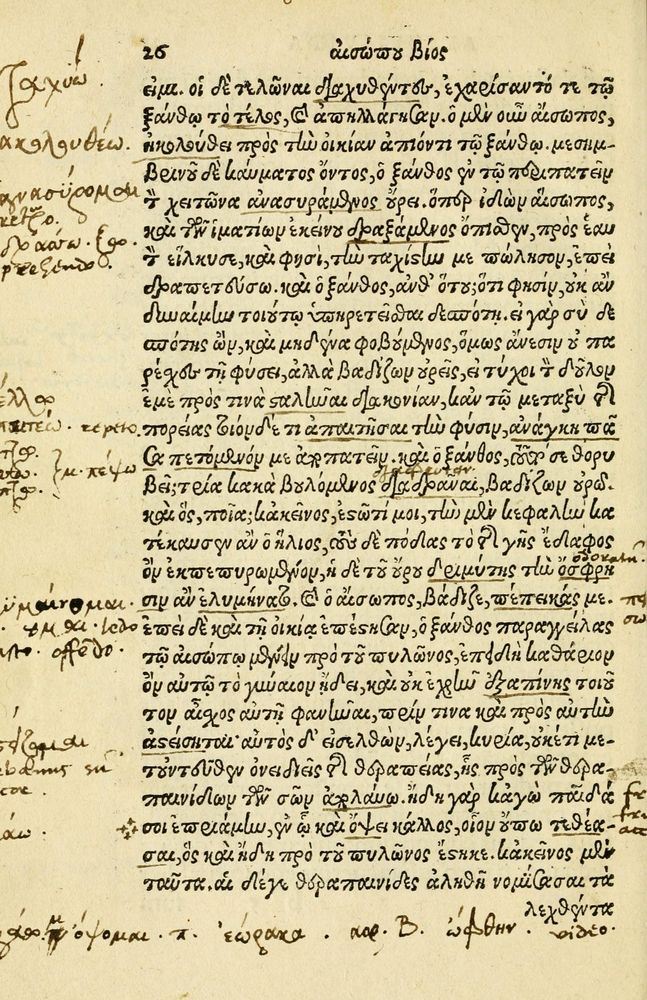 26 αἰσώπου βίος
εἰμι. οἱ δὲ τελῶναι διαχυθέντες, ἐχαρίσαντό τε τῷ
ξάνθῳ τὸ τέλος, καὶ ἀπηλλάγησαν. ὁ μὲν οὖν αἴσωπος,
ἠκολούθει πρὸς τὴν οἰκίαν ἀπιόντι τῷ ξάνθῳ. μεσημ-
βρινοῦ δὲ καύματος ὄντος, ὁ ξάνθος ἐν τῷ περιπατεῖν
τὸν χιτῶνα ἀνασυράμενος οὔρει. ὅπερ ἰδὼν αἴσωπος,
καὶ τῶν ἱματίων ἐκείνου δραξάμενος ὄπισθεν, πρὸς ἑαυ
τὸν εἵλκυσε, καὶ φησὶ, τὴν ταχίστην με πώλησον, ἐπεὶ
δραπετεύσω. καὶ ὁ ξάνθος, ἀνθ' ὅτου; ὅτι φησὶν, οὐκ ἂν
δυναίμην τοιούτῳ ὑπηρετεῖσθαι δεσπότῃ. εἰ γὰρ σὺ δε
σπότης ὢν, καὶ μηδένα φοβούμενος, ὅμως ἄνεσιν οὐ πα
ρέχεις τῇ φύσει, ἀλλὰ βαδίζων οὐρεῖς, εἰ τύχοι τὸν δοῦλον
ἐμὲ πρός τινα σταλῆναι διακονίαν, κἀν τῷ μεταξὺ τῆς
πορείας τοιόνδε τι ἀπαιτῆσαι τὴν φύσιν, ἀνάγκη πᾶ
σα πετόμενόν με ἀποπατεῖν. καὶ ὁ ξάνθος, τοῦτό σε θορυ
βεῖ; τρία κακὰ βουλόμενος διαδρᾶναι, βαδίζων οὐρῶ.
καὶ ὃς, ποῖα; κἀκεῖνος, ἑστῶτί μοι, τὴν μὲν κεφαλὴν κα
τέκαυσεν ἂν ὁ ἥλιος, τοὺς δὲ πόδας τὸ τῆς γῆς ἔδαφος
ὂν ἐκπεπυρωμένον, ἡ δὲ τοῦ οὔρου δριμύτης τὴν ὄσφρη
σιν ἂν ἐλυμήνατο. καὶ ὁ αἴσωπος, βάδιζε, πέπεικάς με.
ἐπεὶ δὲ καὶ τῇ οἰκίᾳ ἐπέστησαν, ὁ ξάνθος παραγγείλας
τῷ αἰσώπῳ μένειν πρὸ τοῦ πυλῶνος, ἐπειδὴ καθάριον
ὂν αὐτῷ τὸ γύναιον ᾔδει, καὶ οὐκ ἐχρῆν ἐξαπίνης τοιοῦ
τον αἶσχος αὐτῇ φανῆναι, πρίν τινα καὶ πρὸς αὐτὴν
ἀστείσηται· αὐτὸς δ' εἰσελθὼν, λέγει, κυρία, οὐκέτι με-
τοὐντεῦθεν ὀνειδιεῖς τῆς θεραπείας, ἧς πρὸς τῶν θερα-
παινίδων τῶν σῶν ἀπολαύω. ἤδη γὰρ κἀγὼ παῖδά
σοι ἐπριάμην, ἐν ᾧ καὶ ὄψει κάλλος, οἷον οὔπω τεθέα-
σαι, ὃς καὶ ἤδη πρὸ τοῦ πυλῶνος ἕστηκε. κἀκεῖνος μὲν
ταῦτα. αἱ δέ γε θεραπαινίδες ἀληθῆ νομίσασαι τὰ
λεχθέντα
ἀκολουθέω.
ἀνασύρομαι
prehendo.
offēdo.
ὄψομαι . π. ἑώρακα . αορ. Β. ὤφθην . video.